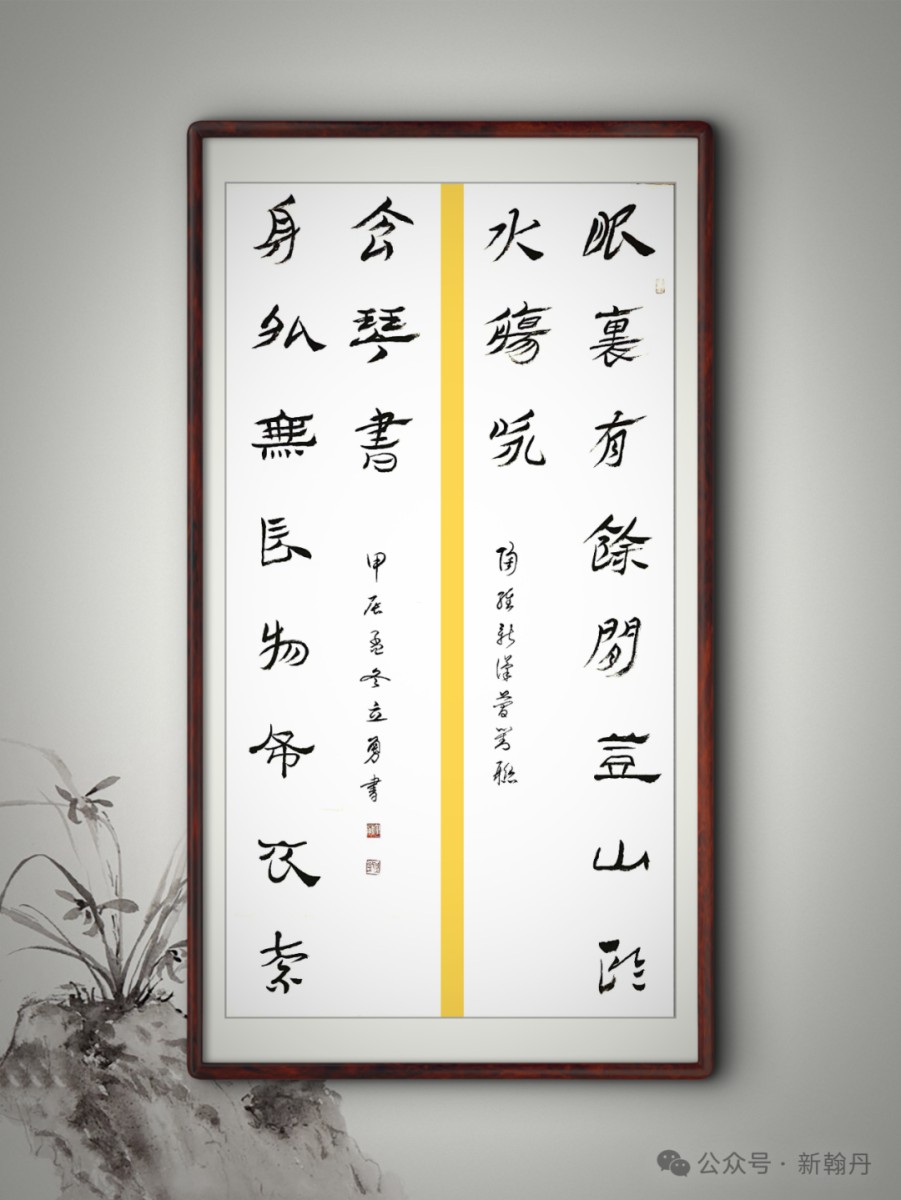 眼裏有餘閒登山臨
水觴咏
陶新漢聯
身外無長物布衣素
食琴書
甲辰孟冬立勇書
公众号·新翰丹